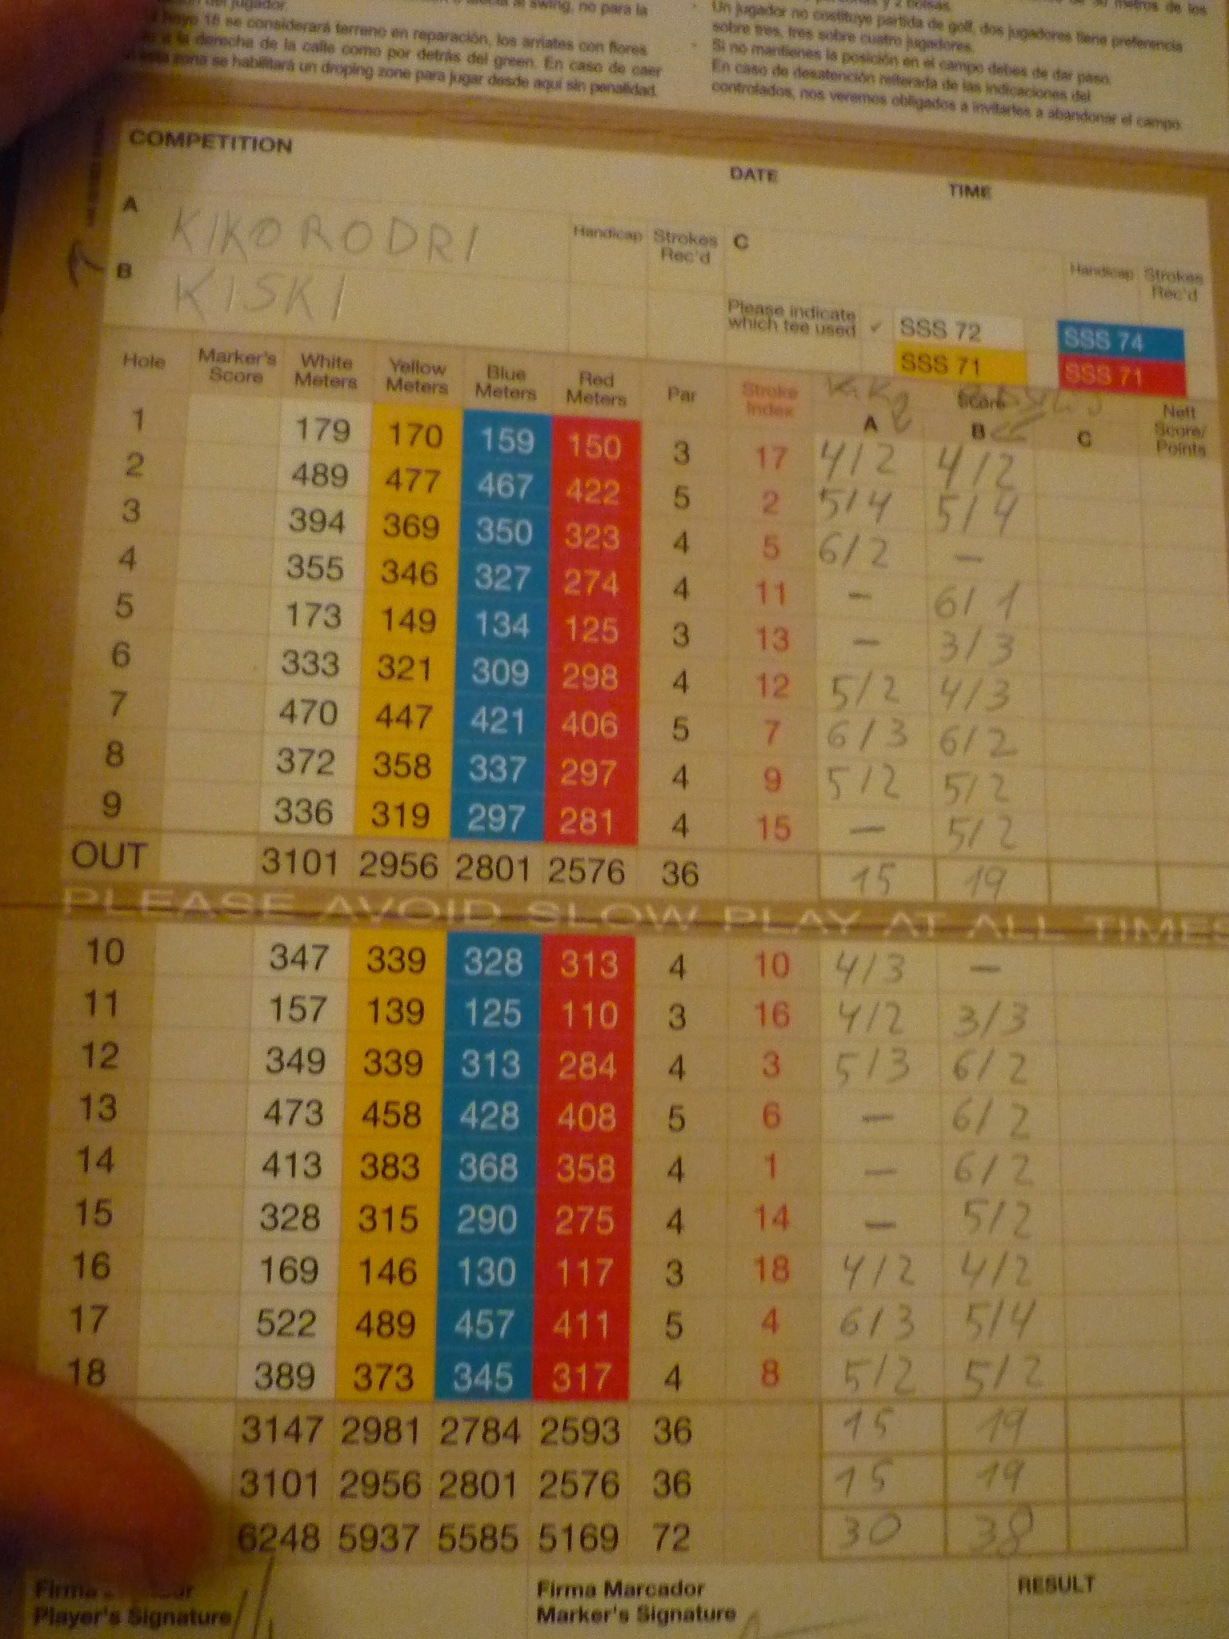 del jugador.
al swing, no para la
hoyo 16 se considerará terreno en reparación, los arriates con flores
a la derecha de la calle como por detrás del green. En caso de caer
zona se habilitará un droping zone para jugar desde aquí sin penalidad.
y 2 bolsas.
metros de los
Un jugador no costituye partida de golf, dos jugadores tiene preferencia
sobre tres, tres sobre cuatro jugadores.
Si no mantienes la posición en el campo debes de dar paso.
En caso de desatención reiterada de las indicaciones del
controlados, nos veremos obligados a invitarles a abandonar el campo.
COMPETITION DATE TIME
A KIKO RODRI Handicap Strokes Rec'd C Handicap Strokes Rec'd
B KISKI
Please indicate which tee used ✓ SSS 72 SSS 74
SSS 71 SSS 71
Hole Marker's Score White Meters Yellow Meters Blue Meters Red Meters Par Stroke Index A Score B C Nett Score/ Points
1 179 170 159 150 3 17 4/2 4/2
2 489 477 467 422 5 2 5/4 5/4
3 394 369 350 323 4 5 6/2 –
4 355 346 327 274 4 11 – 6/1
5 173 149 134 125 3 13 – 3/3
6 333 321 309 298 4 12 5/2 4/3
7 470 447 421 406 5 7 6/3 6/2
8 372 358 337 297 4 9 5/2 5/2
9 336 319 297 281 4 15 – 5/2
OUT 3101 2956 2801 2576 36 15 19
PLEASE AVOID SLOW PLAY AT ALL TIMES
10 347 339 328 313 4 10 4/3 –
11 157 139 125 110 3 16 4/2 3/3
12 349 339 313 284 4 3 5/3 6/2
13 473 458 428 408 5 6 – 6/2
14 413 383 368 358 4 1 – 6/2
15 328 315 290 275 4 14 – 5/2
16 169 146 130 117 3 18 4/2 4/2
17 522 489 457 411 5 4 6/3 5/4
18 389 373 345 317 4 8 5/2 5/2
3147 2981 2784 2593 36 15 19
3101 2956 2801 2576 36 15 19
6248 5937 5585 5169 72 30 38
Firma Firma Marcador RESULT
Player's Signature Marker's Signature